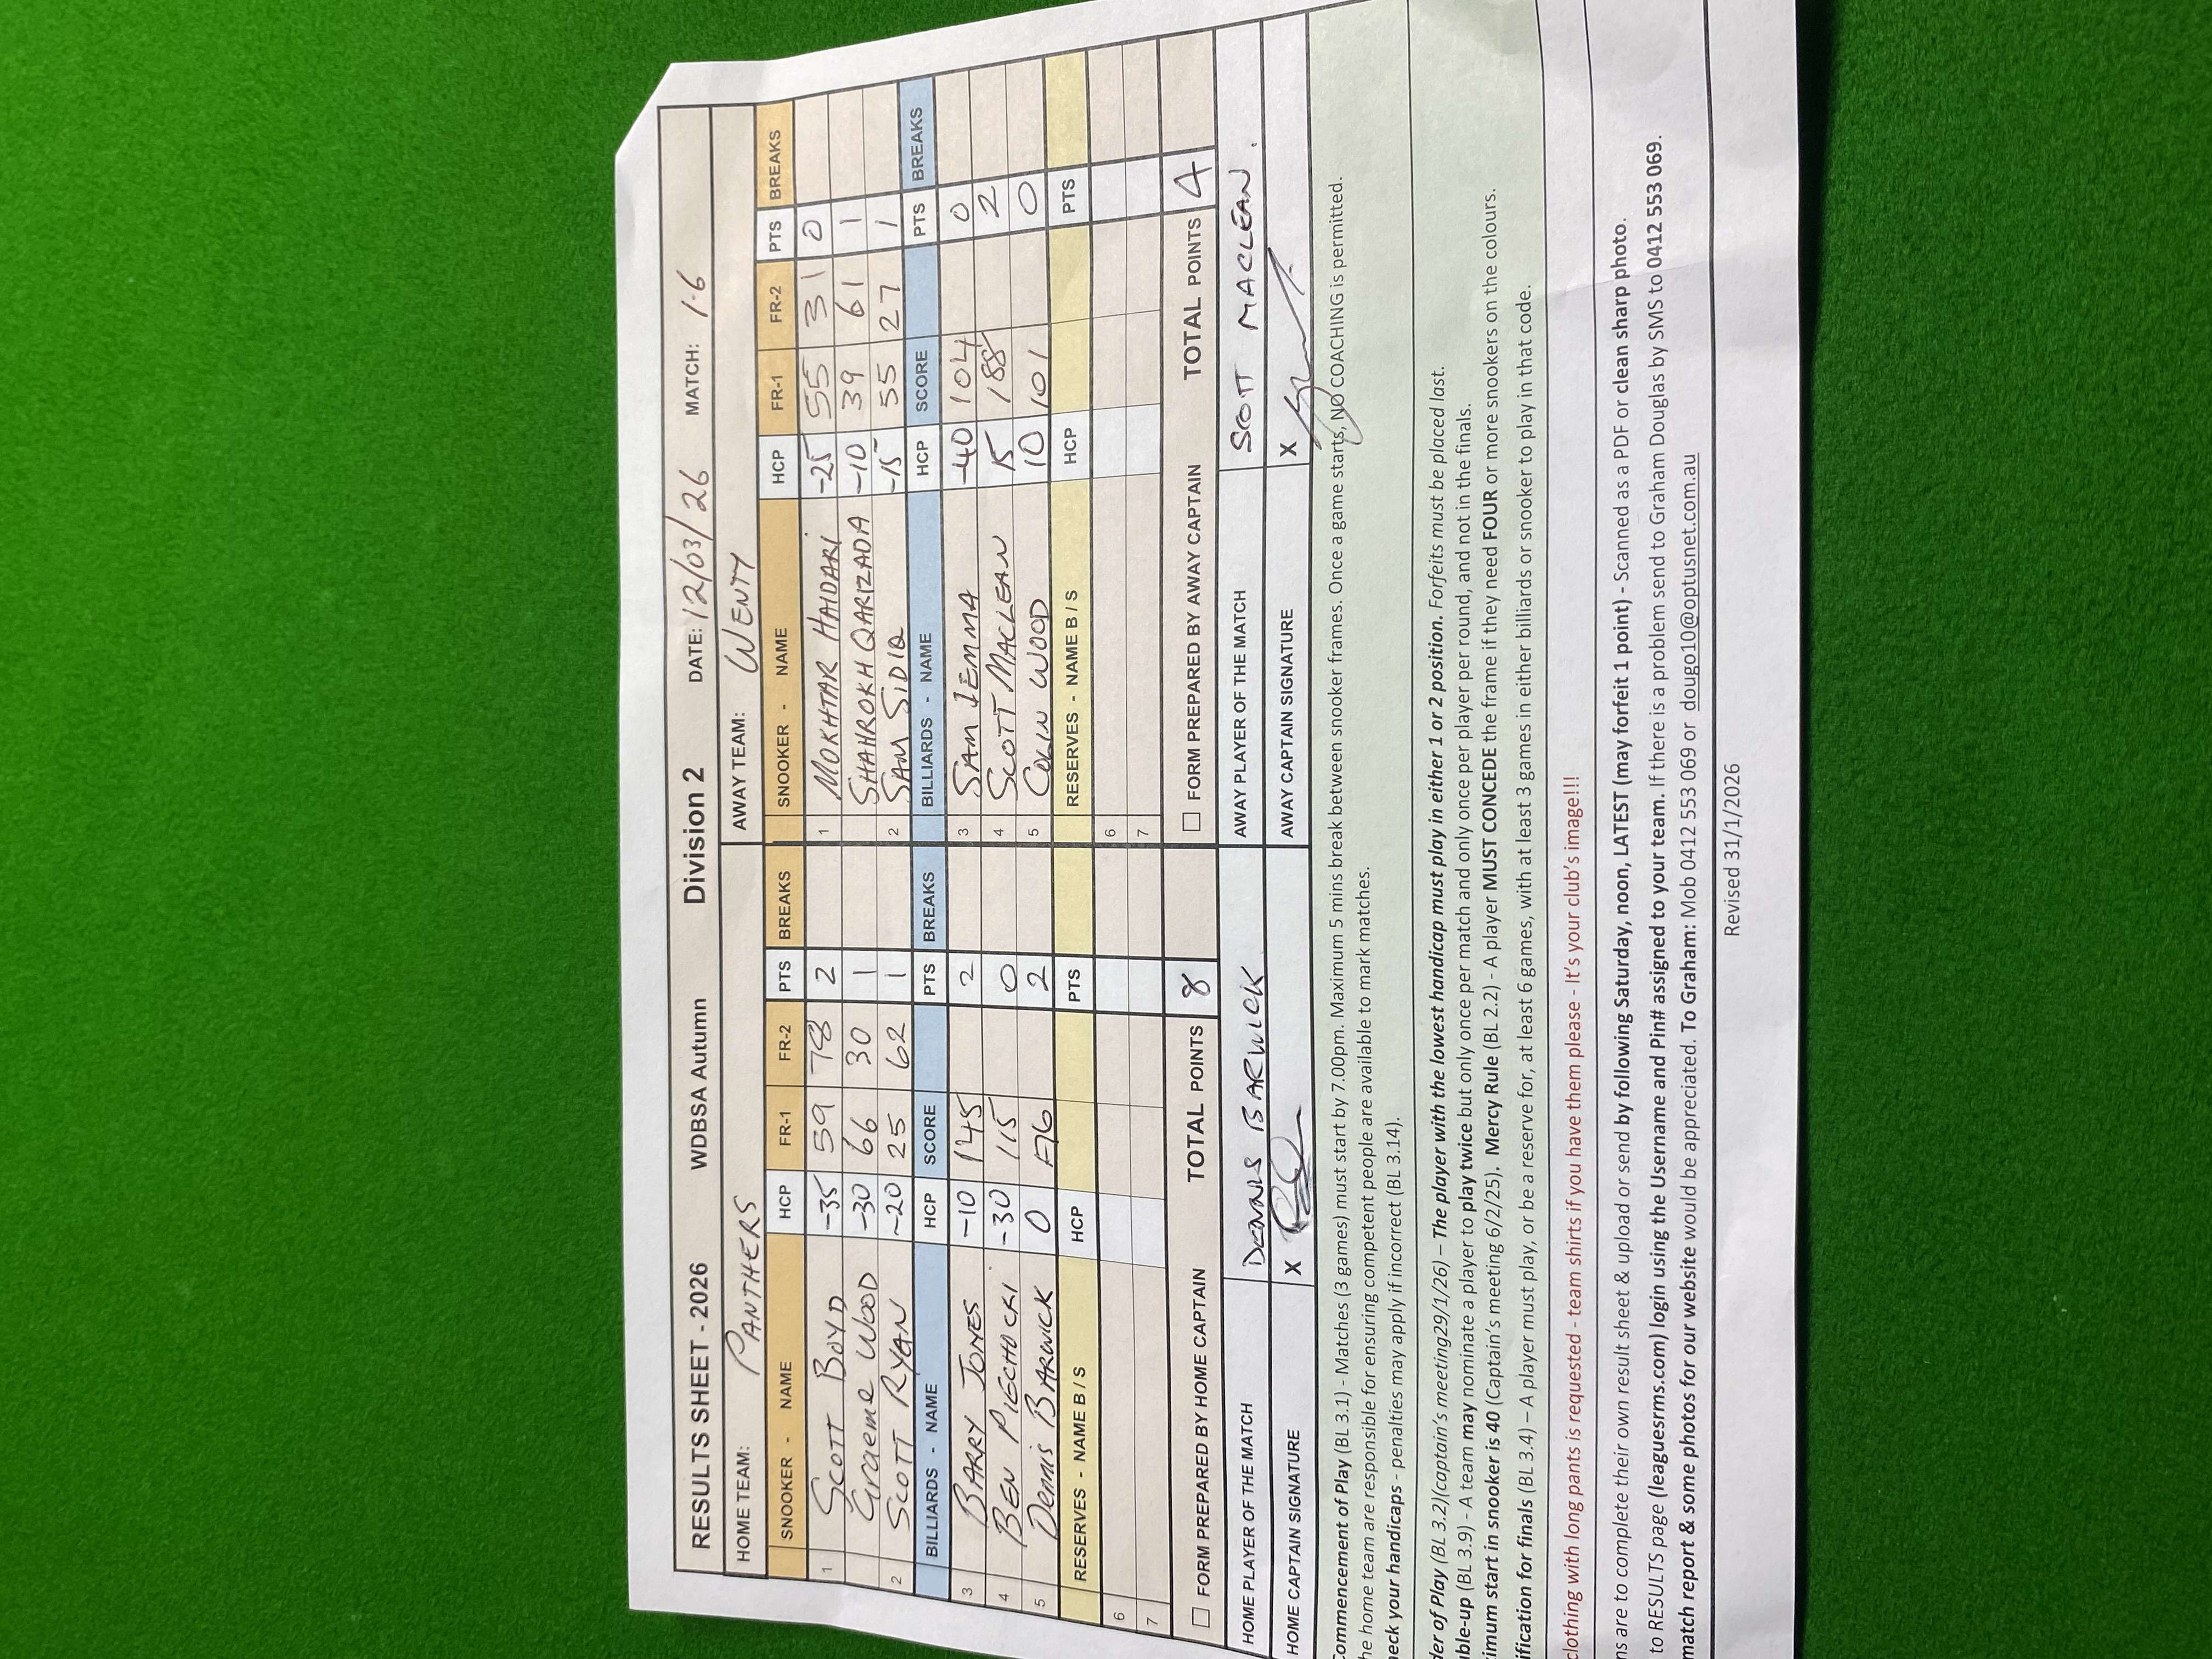 RESULTS SHEET - 2026 WDBSA Autumn Division 2 DATE: 12/03/26 MATCH: 1.6
HOME TEAM: PANTHERS AWAY TEAM: WENTY
SNOOKER - NAME HCP FR-1 FR-2 PTS BREAKS SNOOKER - NAME HCP FR-1 FR-2 PTS BREAKS
1 SCOTT BOYD -35 59 78 2 1 MOKHTAR HAIDARI -25 55 31 0
Graeme WOOD -30 66 30 1 SHAHROKH QARIZADA -10 39 61 1
2 SCOTT RYAN -20 25 62 1 2 SAM SIDIQ -15 55 27 1
BILLIARDS - NAME HCP SCORE PTS BREAKS BILLIARDS - NAME HCP SCORE PTS BREAKS
3 BARRY JONES -10 145 2 3 SAM IEMMA -40 104 0
4 BEN PIECHOCKI -30 115 0 4 SCOTT MACLEAN 15 188 2
5 Dennis BARWICK 0 176 2 5 COLIN WOOD 10 101 0
RESERVES - NAME B / S HCP PTS RESERVES - NAME B / S HCP PTS
6 6
7 7
FORM PREPARED BY HOME CAPTAIN TOTAL POINTS 8 FORM PREPARED BY AWAY CAPTAIN TOTAL POINTS 4
HOME PLAYER OF THE MATCH DENNIS BARWICK AWAY PLAYER OF THE MATCH SCOTT MACLEAN.
HOME CAPTAIN SIGNATURE X AWAY CAPTAIN SIGNATURE X
Commencement of Play (BL 3.1) - Matches (3 games) must start by 7.00pm. Maximum 5 mins break between snooker frames. Once a game starts, NO COACHING is permitted.
he home team are responsible for ensuring competent people are available to mark matches.
heck your handicaps - penalties may apply if incorrect (BL 3.14).
der of Play (BL 3.2)(captain's meeting29/1/26) – The player with the lowest handicap must play in either 1 or 2 position. Forfeits must be placed last.
ble-up (BL 3.9) - A team may nominate a player to play twice but only once per match and only once per player per round, and not in the finals.
imum start in snooker is 40 (Captain's meeting 6/2/25). Mercy Rule (BL 2.2) - A player MUST CONCEDE the frame if they need FOUR or more snookers on the colours.
ification for finals (BL 3.4) – A player must play, or be a reserve for, at least 6 games, with at least 3 games in either billiards or snooker to play in that code.
clothing with long pants is requested - team shirts if you have them please - It's your club's image!!!
ns are to complete their own result sheet & upload or send by following Saturday, noon, LATEST (may forfeit 1 point) - Scanned as a PDF or clean sharp photo.
to RESULTS page (leaguesrms.com) login using the Username and Pin# assigned to your team. If there is a problem send to Graham Douglas by SMS to 0412 553 069.
match report & some photos for our website would be appreciated. To Graham: Mob 0412 553 069 or dougo10@optusnet.com.au
Revised 31/1/2026